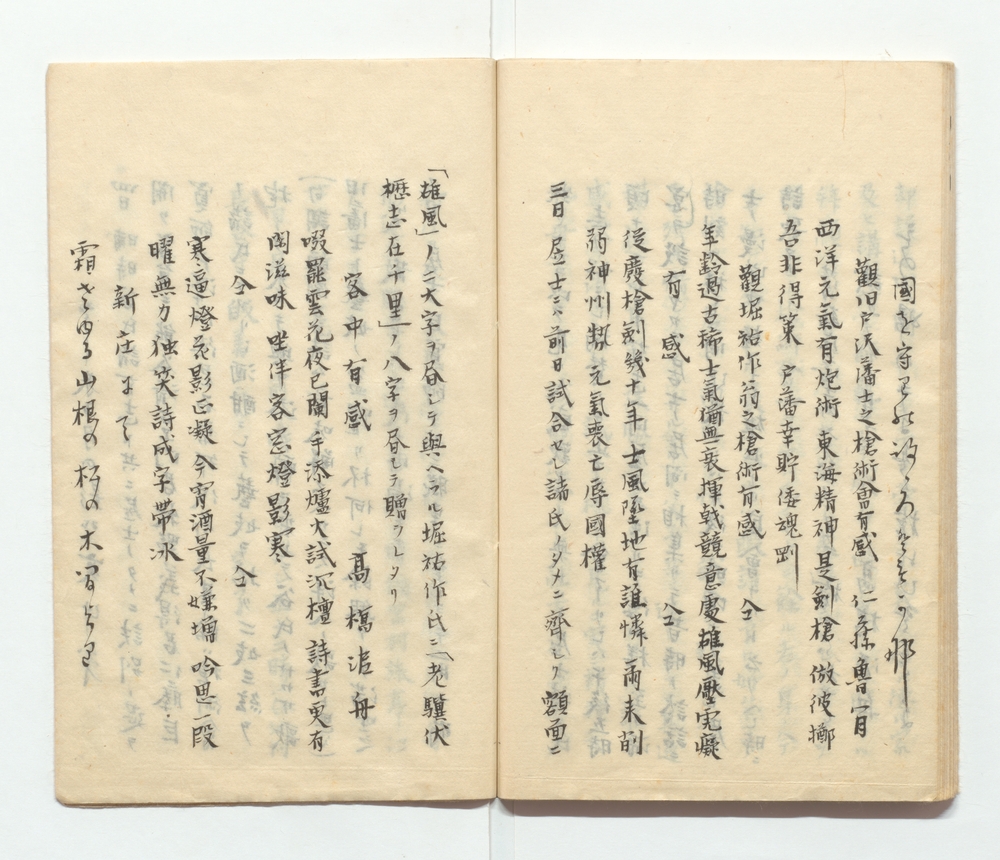 國を守る
觀旧戸沢藩士之槍術會有感 仁藤魯宵
西洋元氣有炮術 東海精神是劍槍 倣彼擲
吾非得策 戸藩幸貯倭魂剛
觀堀祐作翁之槍術有感 仝
年齡過古稀士氣猶無衰揮戟競意處雄風壓完癡
有感 仝
従廢槍剣幾十年 士風墜地有誰憐 爾来削
弱神州勢 元氣喪亡辱國權
三日居士ハ前日試合セシ諸氏ノタメニ齊シク額面ニ
「雄風」ノ二大字ヲ昼シテ與ヘラル堀祐作氏ニ「老驥伏
櫪志在千里」ノ八字ヲ昼シテ贈ラレタリ
客中有感 高槗泥舟
啜罷雲花夜已闌手添爐火試沉檀 詩書更有
閑滋味 坐伴客窓燈影寒
仝 仝
寒逼燈花影正凝 今宵酒量不嫌増 吟思一段
曜無力独笑詩成字帶氷
新庄まて
霜さゆる山根の杉の木